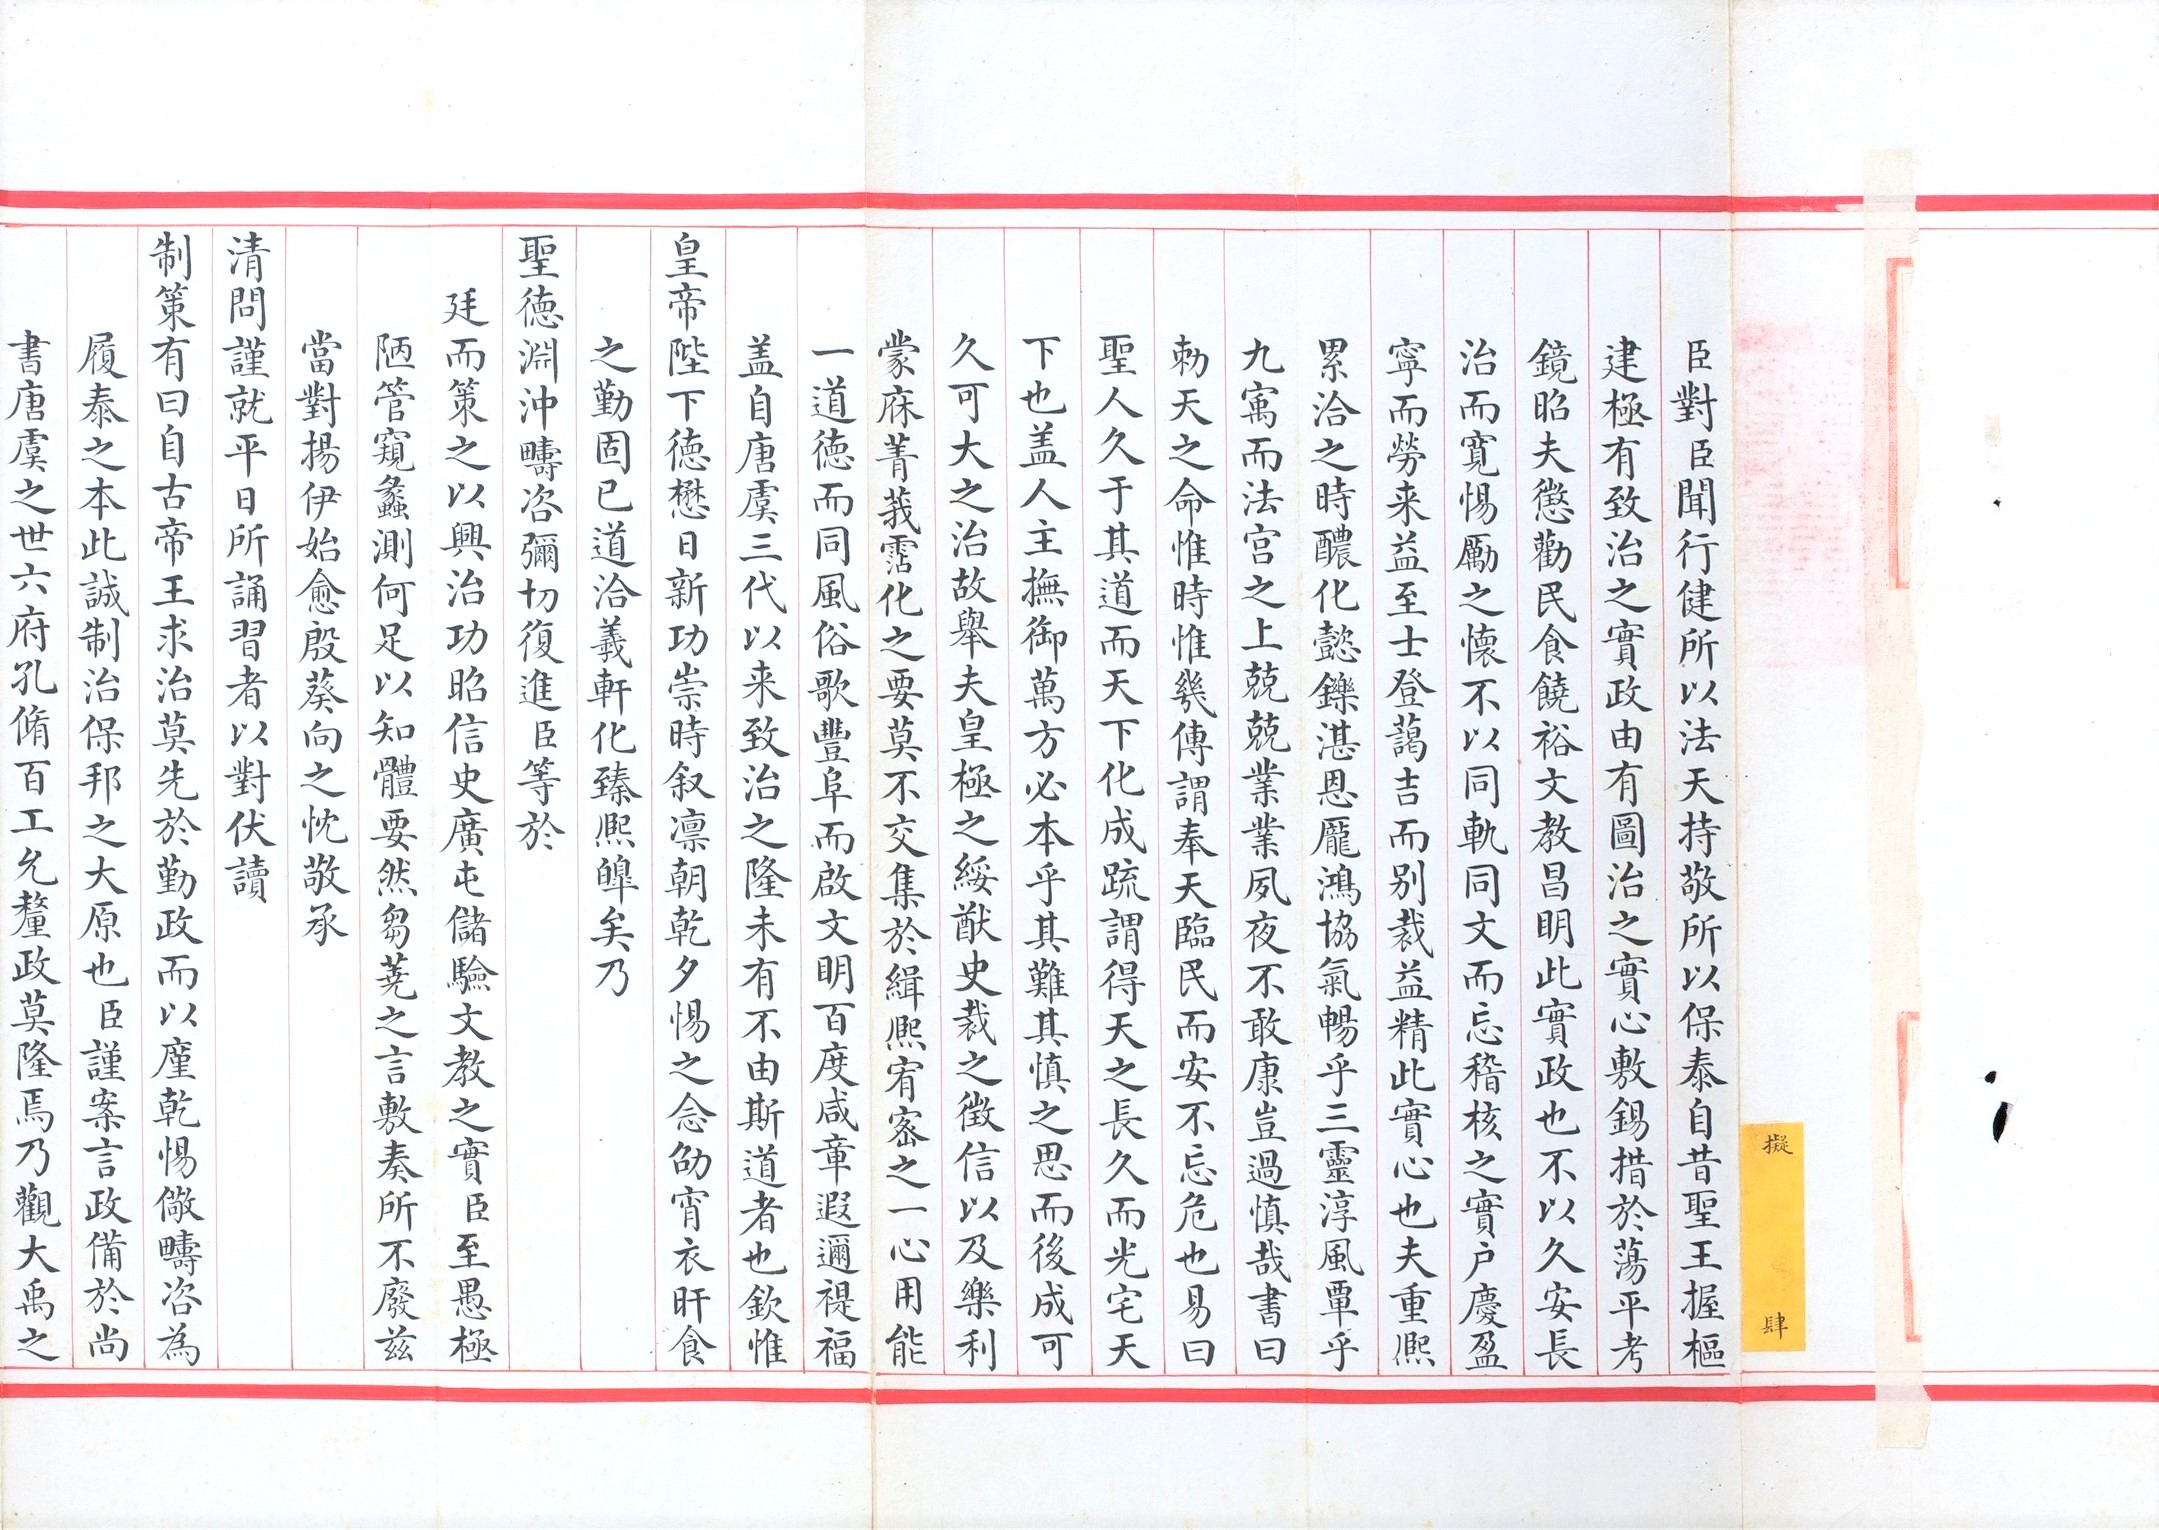 擬 肆
臣對臣聞行健所以法天持敬所以保泰自昔聖王握樞
建極有致治之實政由有圖治之實心敷錫措於蕩平考
鏡昭夫懲勸民食饒裕文教昌明此實政也不以久安長
治而寬惕勵之懷不以同軌同文而忘稽核之實戶慶盈
寧而勞来益至士登藹吉而別裁益精此實心也夫重熙
累洽之時醲化懿鑠湛恩龐鴻協氣暢乎三靈淳風覃乎
九寓而法宫之上兢兢業業夙夜不敢康豈過慎哉書曰
勅天之命惟時惟幾傳謂奉天臨民而安不忘危也易曰
聖人久于其道而天下化成疏謂得天之長久而光宅天
下也盖人主撫御萬方必本乎其難其慎之思而後成可
久可大之治故舉夫皇極之綏猷史裁之徵信以及樂利
蒙庥菁莪霑化之要莫不交集於緝熙宥宻之一心用能
一道德而同風俗歌豐阜而啟文明百度咸章遐邇禔福
盖自唐虞三代以来致治之隆未有不由斯道者也欽惟
皇帝陛下德懋日新功崇時叙凛朝乾夕惕之念劭宵衣旰食
之勤固已道洽羲軒化臻熙皥矣乃
聖德淵沖疇咨彌切復進臣等於
廷而策之以興治功昭信史廣屯儲驗文教之實臣至愚極
陋管窺蠡測何足以知體要然芻蕘之言敷奏所不廢兹
當對揚伊始愈殷葵向之忱敬承
清問謹就平日所誦習者以對伏讀
制策有曰自古帝王求治莫先於勤政而以廑乾惕儆疇咨為
履泰之本此誠制治保邦之大原也臣謹案言政備於尚
書唐虞之世六府孔脩百工允釐政莫隆焉乃觀大禹之